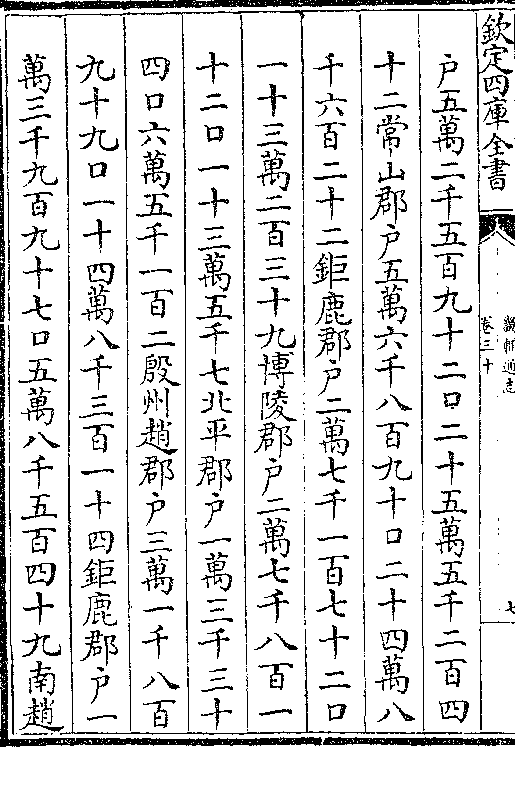 欽定四庫全書
畿輔通志
卷三十
七
户五萬二千五百九十二口二十五萬五千二百四
十二常山郡户五萬六千八百九十口二十四萬八
千六百二十二鉅鹿郡户二萬七千一百七十二口
一十三萬二百三十九博陵郡户二萬七千八百一
十二口一十三萬五千七北平郡户一萬三千三十
四口六萬五千一百二殷州趙郡户三萬一千八百
九十九口一十四萬八千三百一十四鉅鹿郡户一
萬三千九百九十七口五萬八千五百四十九南趙